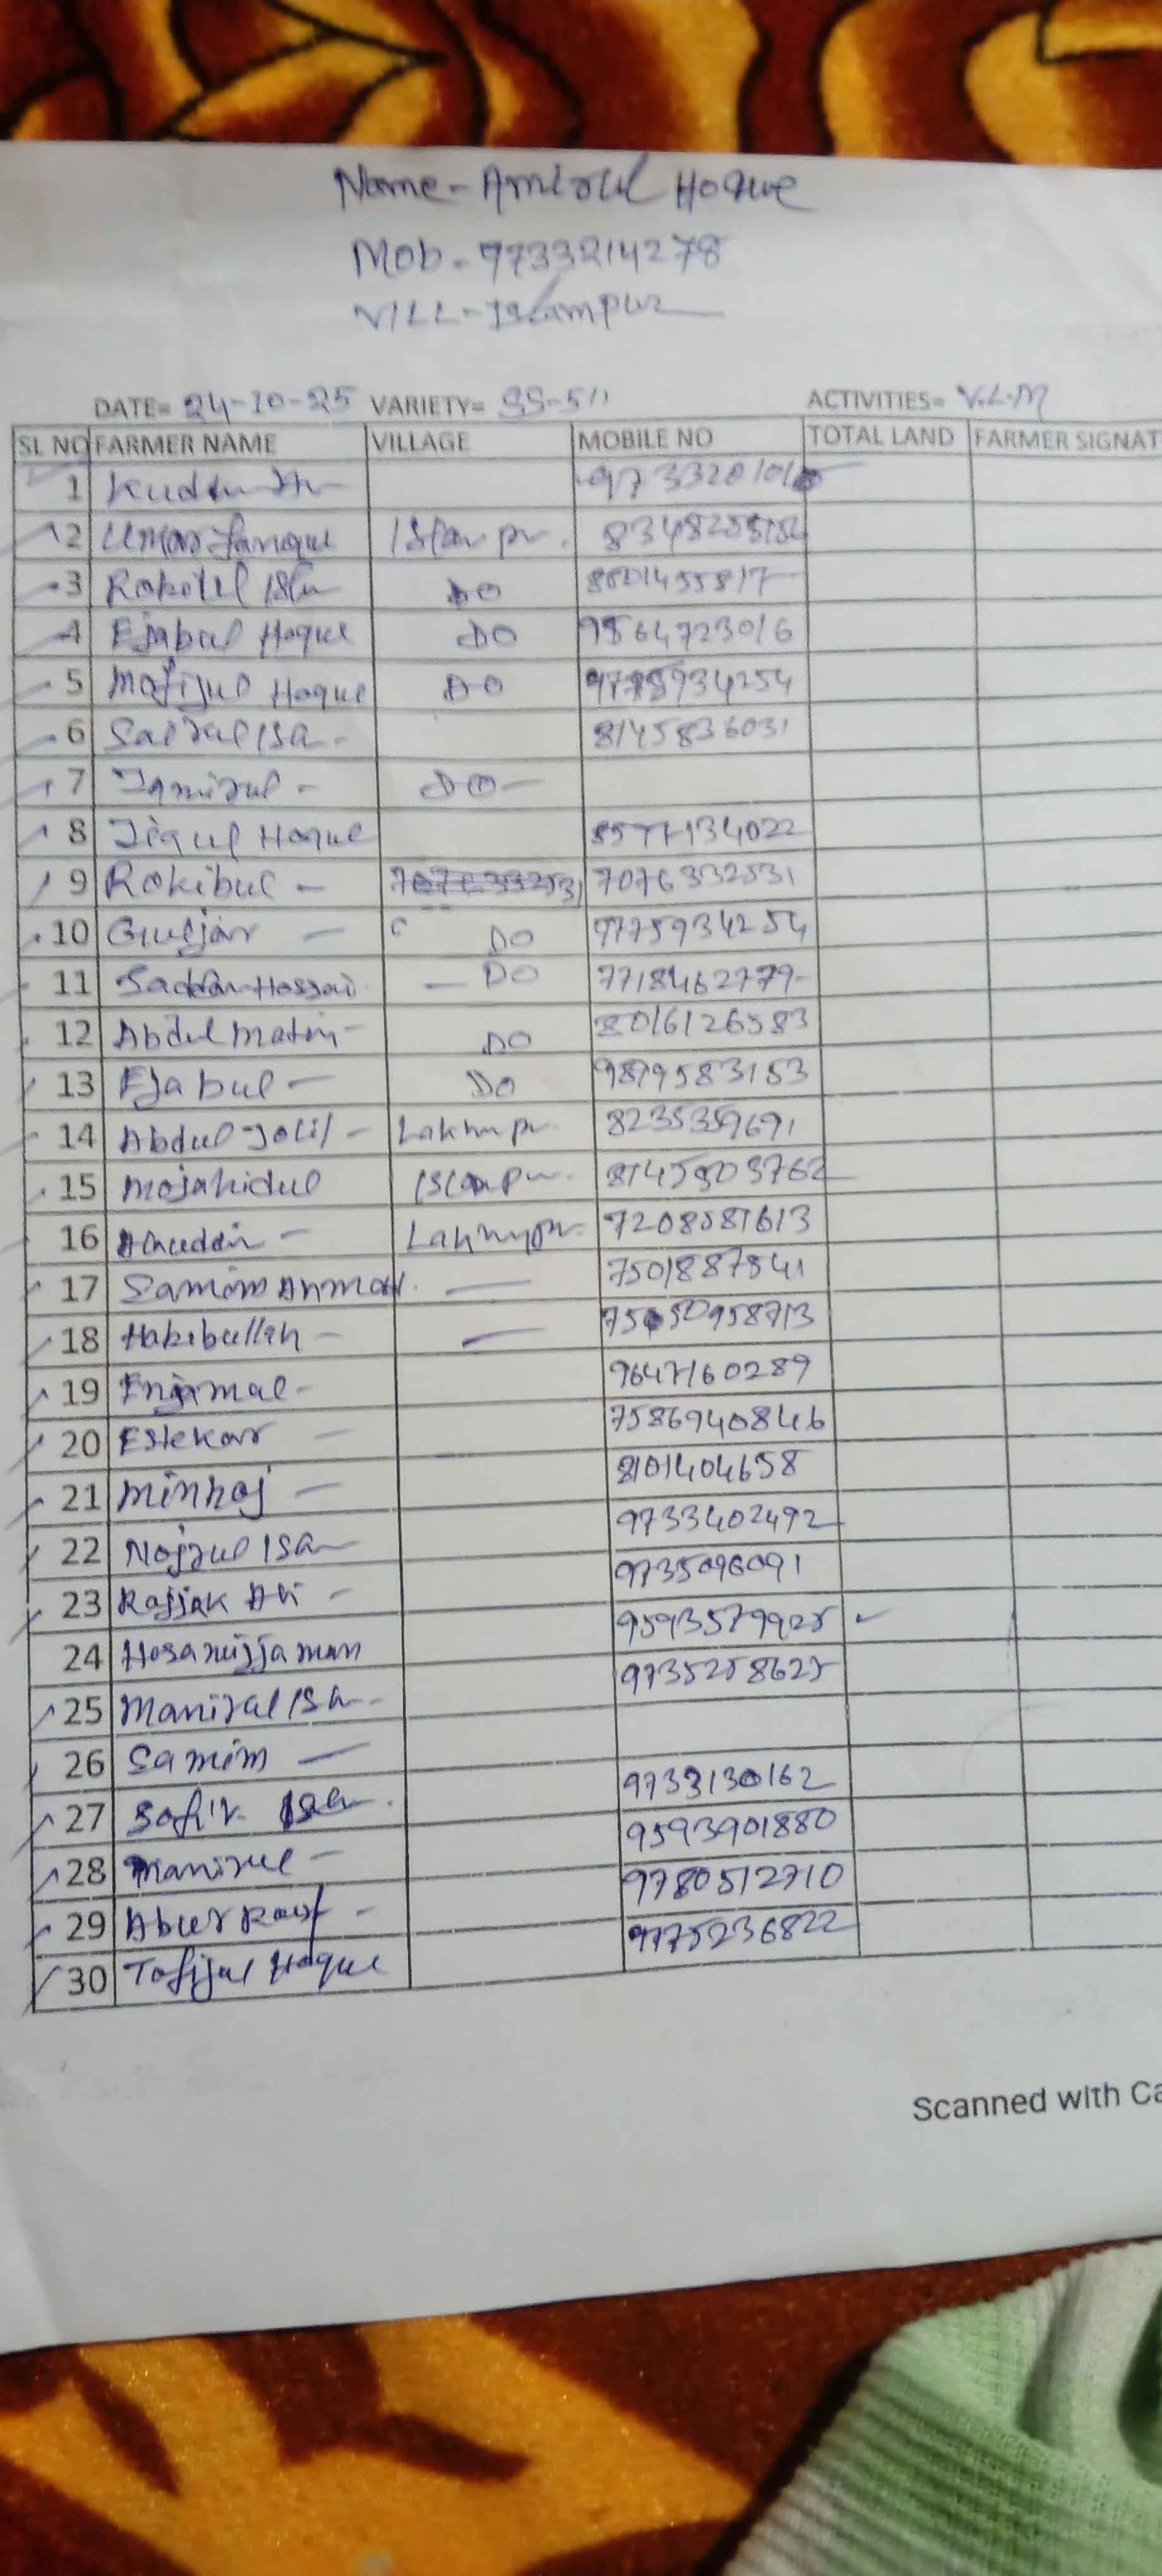 Name - Amirul Hoque
Mob - 9733214278
VILL - Islampur
DATE= 24-10-25 VARIETY= SS-511 ACTIVITIES= V.L.M
SL NO FARMER NAME VILLAGE MOBILE NO TOTAL LAND FARMER SIGNAT
1
2 Umar Faroque Islampur. 8348255152
3 Rakibul Islam DO 8801455817
4 Ejabul Hoque DO 9564723016
5 Mofijul Hoque DO
6 8145836031
7 Jamirul - DO -
8 Jiaul Hoque 134022
9 Rokibul - 7076332531
10 Guljar - DO 9775934254
11 Saddam Hossain - DO 7718462779
12 Abdul Matin - DO 8016126583
13 Ejabul - DO 583153
14 Abdul Jolil - Lakhnpur 8235359691
15 Mojahidul Islampur. 8145903762
16 Alauddin - Lakhnpur. 7208581613
17 Samim Ahmad. - 7501887841
18 Habibullah - -
19 Enjamul - 9647160289
20 Estekar - 7586940846
21 Minhaj - 8101404658
22 Nojrul Isa 9733402492
23 Rajjak Ali - 9735096091
24 Hosanujjaman 9593579925
25 Manirul Isa - 9735258625
26 Samim -
27 Sofir 9733130162
28 Manirul - 9593901880
29 Abur Rouf - 9780512710
30 Tofijul Hoque 9775236822
Scanned with Ca